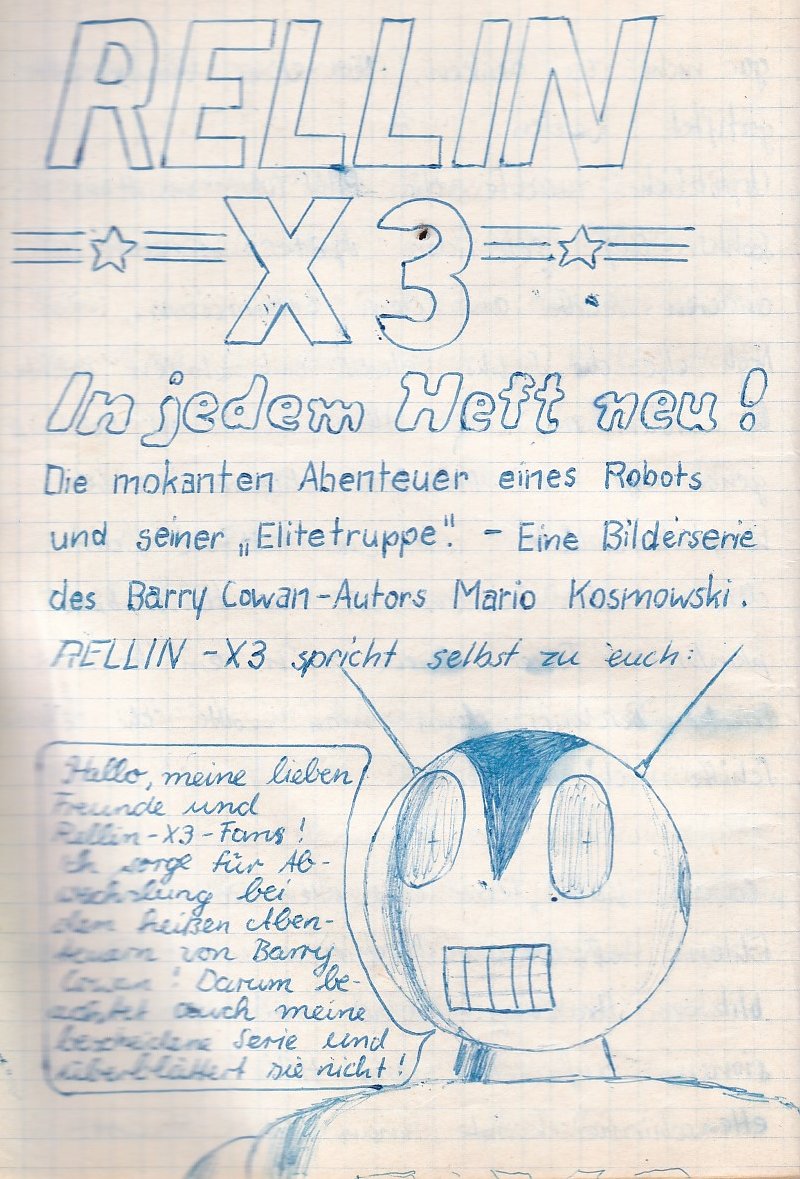 RELLIN
X3
In jedem Heft neu!
Die mokanten Abenteuer eines Robots
und seiner „Elitetruppe". - Eine Bilderserie
des Barry Cowan-Autors Mario Kosmowski.
RELLIN-X3 spricht selbst zu euch:
Hello, meine lieben
Freunde und
Rellin-X3-Fans!
Ich sorge für Ab-
wechslung bei
dem heißen Aben-
teuern von Barry
Cowan! Darum be-
achtet auch meine
bescheidene Serie und
überblättert sie nicht!